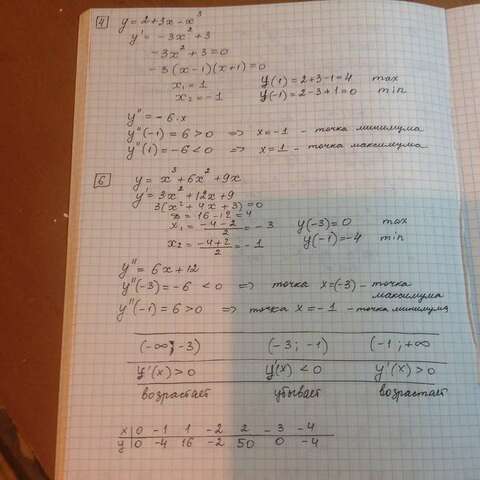 4 y = 2+3x-x³
y' = -3x²+3
-3x²+3=0
-3(x-1)(x+1)=0
x₁ = 1 y(1) = 2+3-1=4 max
x₂ = -1 y(-1) = 2-3+1=0 min
y'' = -6·x
y''(-1) = 6 > 0 => x=-1 - точка минимума
y''(1) = -6 < 0 => x=1 - точка максимума
6 y = x³+6x²+9x
y' = 3x²+12x+9
3(x²+4x+3)=0
D = 16-12=4
x₁ = (-4-2)/2 = -3 y(-3)=0 max
x₂ = (-4+2)/2 = -1 y(-1)=-4 min
y'' = 6x+12
y''(-3) = -6 < 0 => точка x=(-3) - точка
максимума
y''(-1) = 6 > 0 => точка x=-1 - точка минимума
(-∞; -3) (-3; -1) (-1; +∞
y'(x)>0 y'(x)<0 y'(x)>0
возрастает убывает возрастает
x 0 -1 1 -2 2 -3 -4
y 0 -4 16 -2 50 0 -4